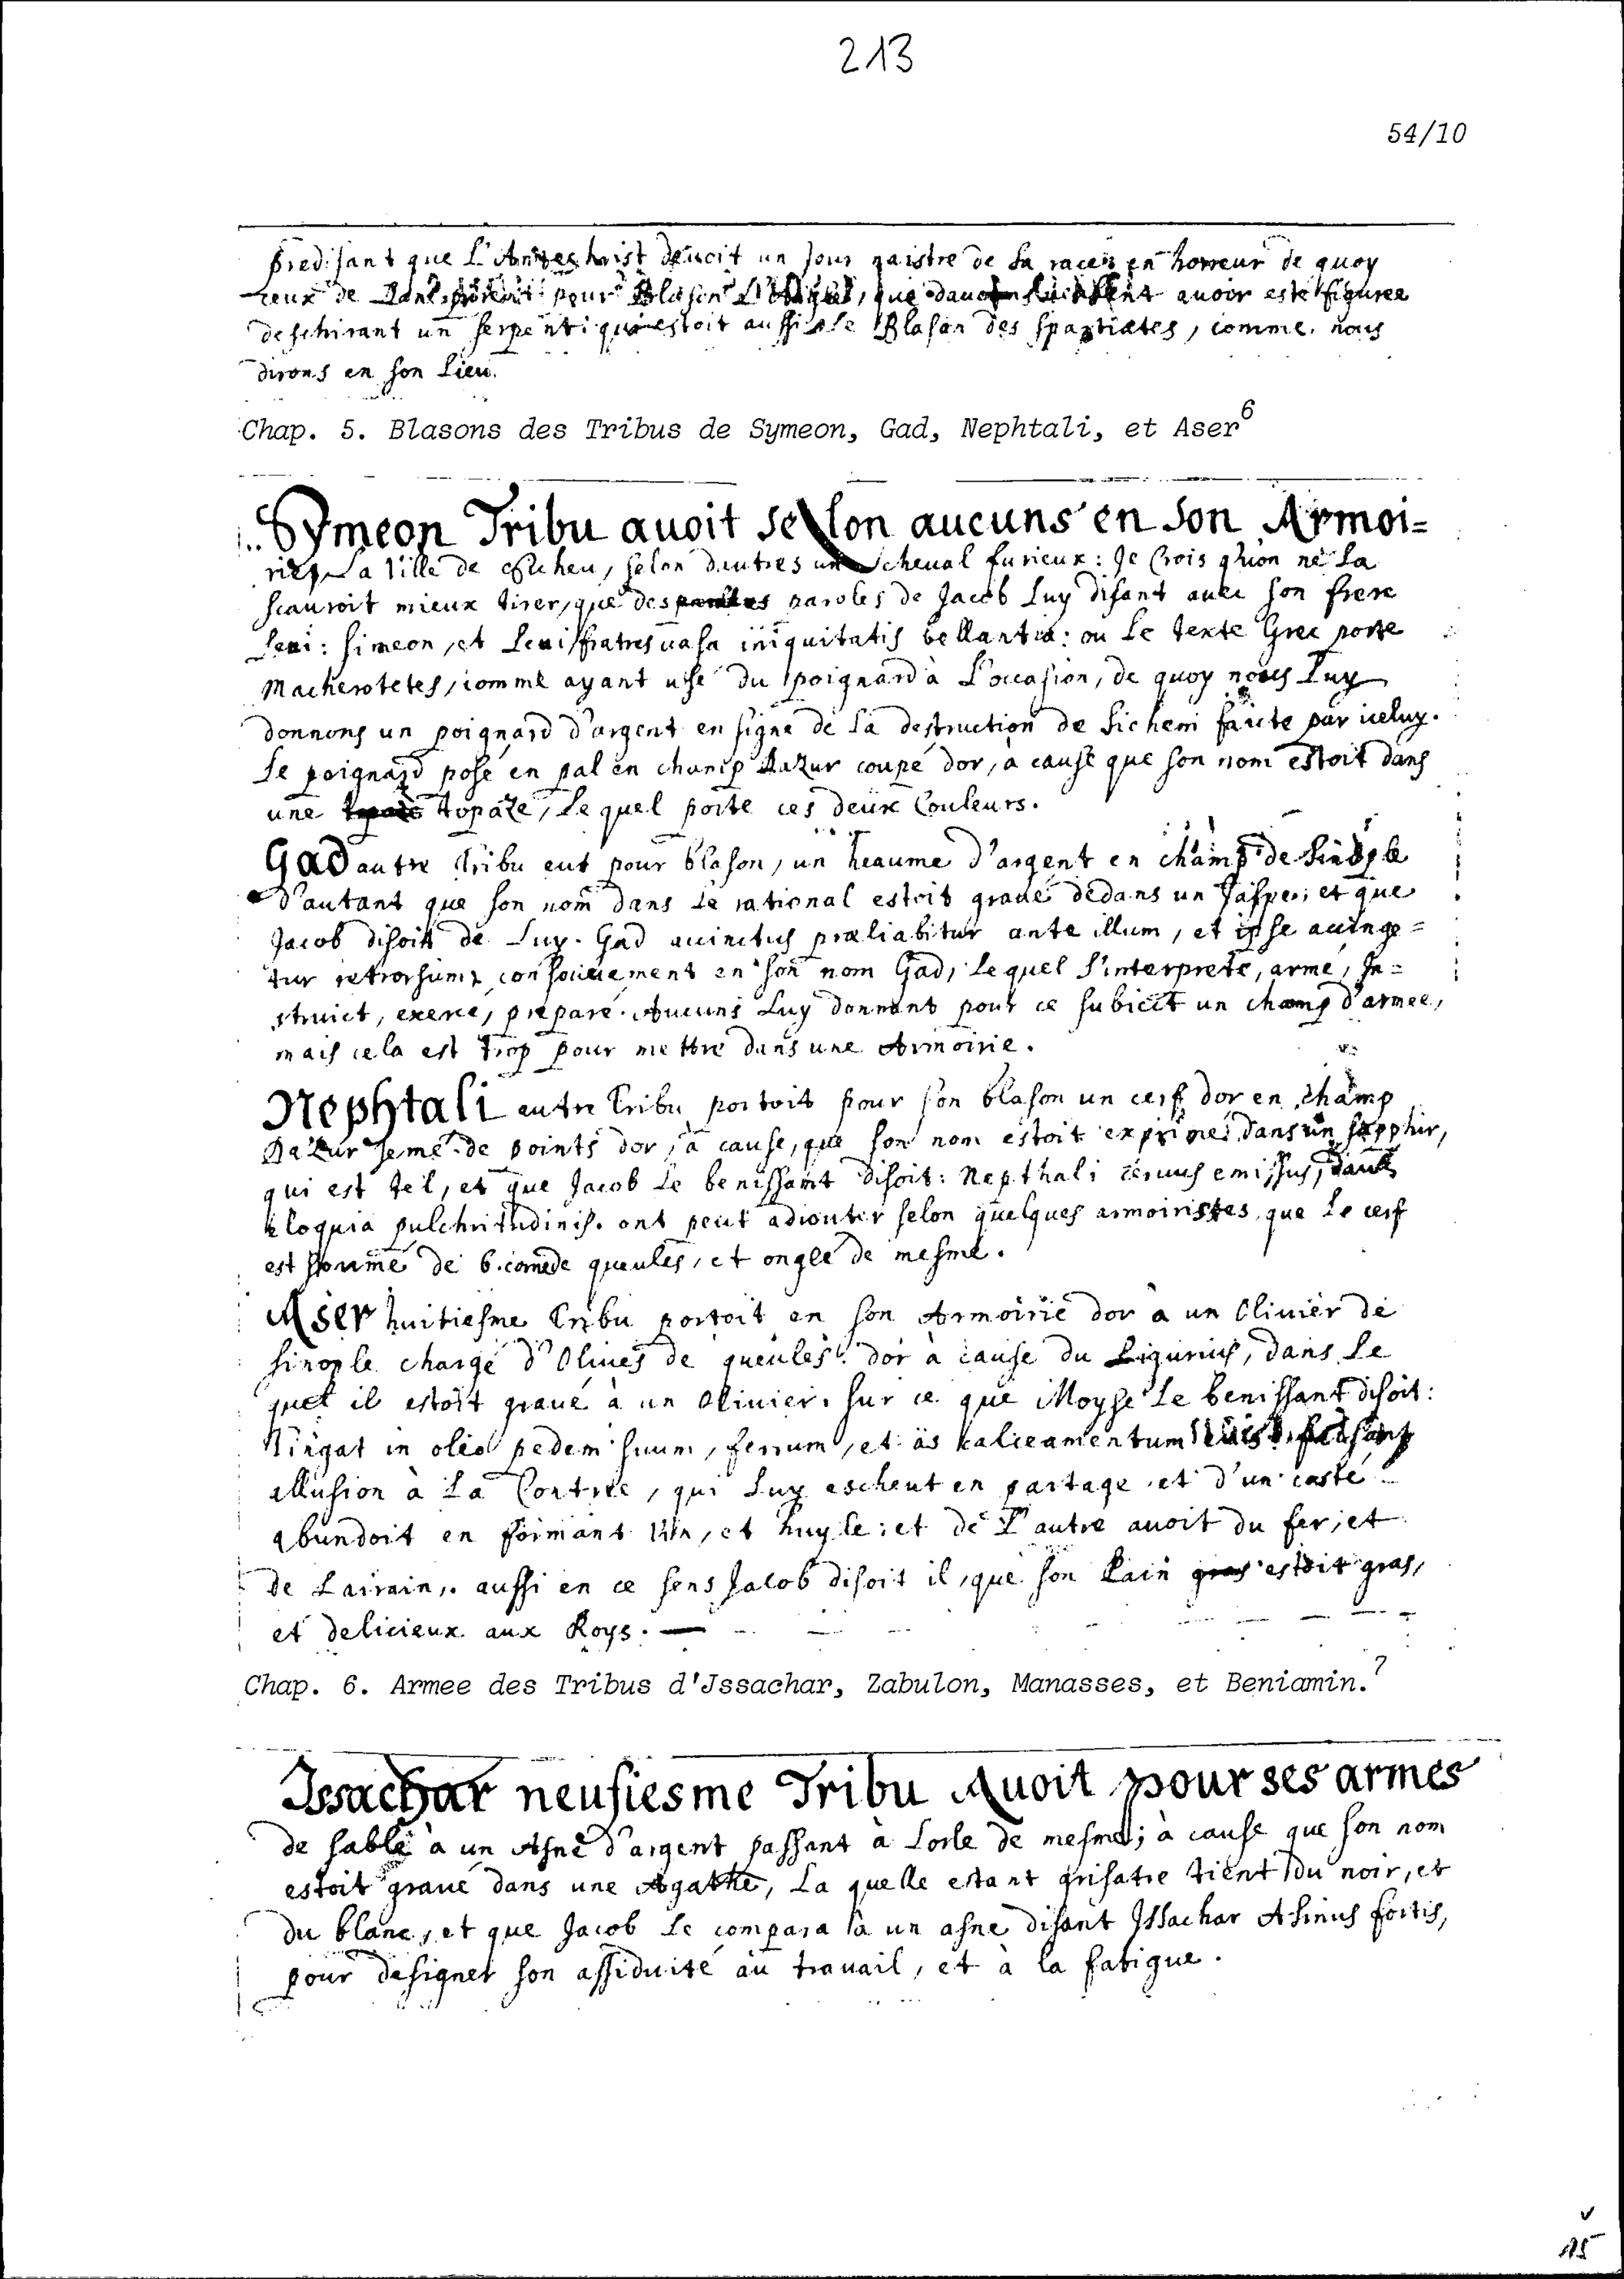 213
54/10
predisant que L'Antechrist deuoit un jour naistre de sa race; en horreur de quoy
ceux de Dan pour Blason L'Aigle, que auoir esté figuree
deschirant un serpent; qui estoit aussi le Blason des spartiates, comme nous
dirons en son Lieu.
Chap. 5. Blasons des Tribus de Symeon, Gad, Nephtali, et Aser 6
Symeon Tribu auoit selon aucuns en son Armoi=
ries La Ville de Sichen, selon dautres un cheual furieux: Je Crois qu'on ne La
scauroit mieux tirer, que des paroles de Jacob Luy disant auec son frere
Leui: simeon, et Leui fratres uasa iniquitatis bellantia: ou Le texte Grec porte
Macherotetes, comme ayant usé du poignard à L'occasion, de quoy nous Luy
donnons un poignard d'argent en signe de La destruction de Sichem faicte par iceluy.
Le poignard posé en pal en champ Dazur coupé dor, à cause que son nom estoit dans
une topaze, Le quel porte ces deux Couleurs.
Gad autre Tribu eut pour blason, un heaume d'argent en champ de Sinople
d'autant que son nom dans Le rational estoit graué dedans un Jaspe; et que
Jacob disoit de Luy. Gad accinctus præliabitur ante illum, et ipse accinge=
tur retrorsum, en son nom Gad, Lequel s'interprete, armé, In=
struict, exercé, preparé. Aucuns Luy donnent pour ce subiect un champ d'armee,
mais cela est trop pour mettre dans une Armoirie.
Nephtali autre Tribu portoit pour son blason un cerf dor en champ
Dazur semé de points dor, à cause, que son nom estoit exprimé dans un sapphir,
qui est tel, et que Jacob Le benissant disoit: Nepthali ceruus emissus, dans
eloquia pulchritudinis. ont peut adiouter selon quelques armoiristes que Le cerf
est sommé de 6. corne de gueules, et onglé de mesme.
Aser huitiesme Tribu portoit en son Armoirie dor à un Oliuier de
sinople chargé d'Oliues de gueules: dor à cause du Ligurius, dans Le
quel il estoit graué à un Oliuier. sur ce que Moyse Le benissant disoit:
Tingat in oleo pedem suum, ferrum, et æs calceamentum eius. faisant
allusion à La Contree, qui Luy escheut en partage et d'un costé
abundoit en froment Vin, et huyle: et de L'autre auoit du fer, et
de Lairain, aussi en ce sens Jacob disoit il, que son Pain gras estoit gras,
et delicieux aux Roys.
Chap. 6. Armee des Tribus d'Jssachar, Zabulon, Manasses, et Beniamin. 7
Issachar neufiesme Tribu Auoit pour ses armes
de sable à un Asne d'argent passant à Lorle de mesme; à cause que son nom
estoit graué dans une Agathe, La quelle estant grisatre tient du noir, et
du blanc, et que Jacob Le compara à un asne disant Jssachar Asinus fortis,
pour designer son assiduité au trauail, et à la fatigue.